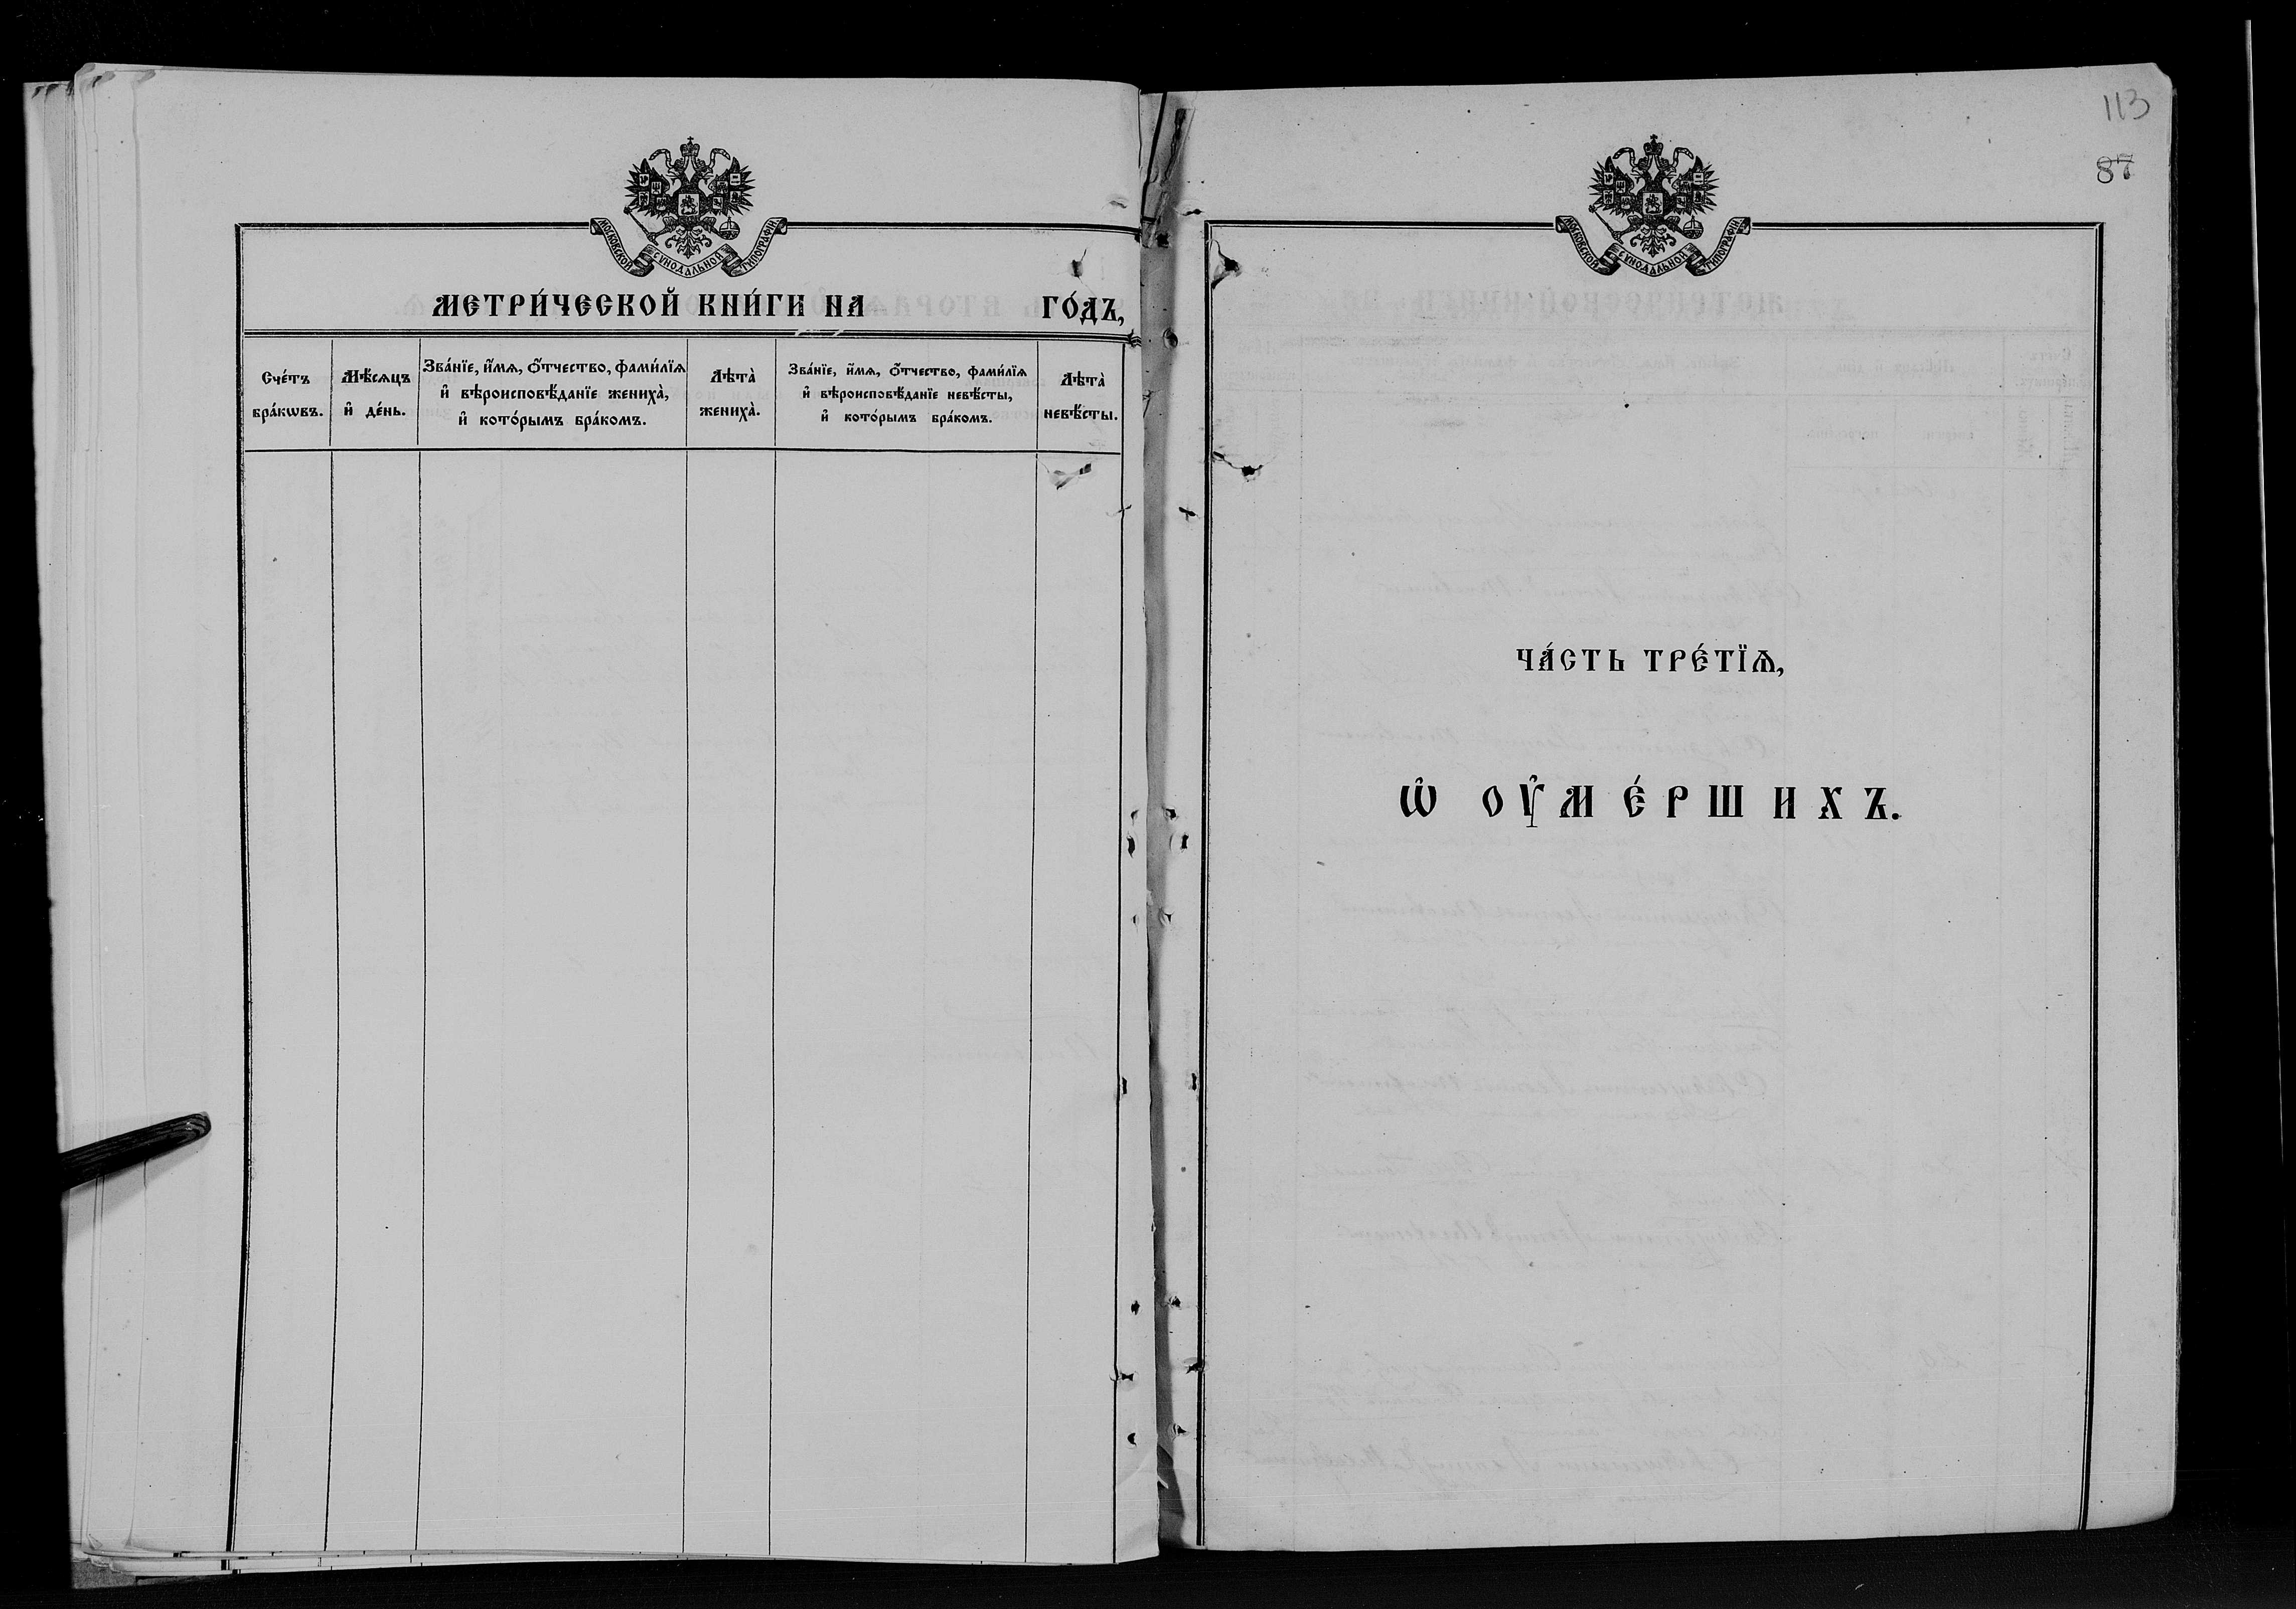 МОСКОВСКОЙ СѴНОДАЛЬНОЙ ТИПОГРАФІИ.
МЕТРИ́ЧЕСКОЙ КНИ́ГИ НА ГО́ДЪ,
Сче́тъ бра́кѡвъ.
Мѣ́сѧцъ и҆ де́нь.
Зва́нїе, и҆́мѧ, ѻ҆́тчество, фами́лїѧ
и҆ вѣроисповѣ́данїе жениха̀,
и҆ кото́рымъ бра́комъ.
Лѣта̀ жениха̀.
Зва́нїе, и҆́мѧ, ѻ҆́тчество, фами́лїѧ
и҆ вѣроисповѣ́данїе невѣ́сты,
и҆ кото́рымъ бра́комъ.
Лѣта̀ невѣ́сты.
113
87
МОСКОВСКОЙ СѴНОДАЛЬНОЙ ТИПОГРАФІИ.
ЧА́СТЬ ТРЕ́ТЇѦ,
Ѡ҆ ОУ҆МЕ́РШИХЪ.